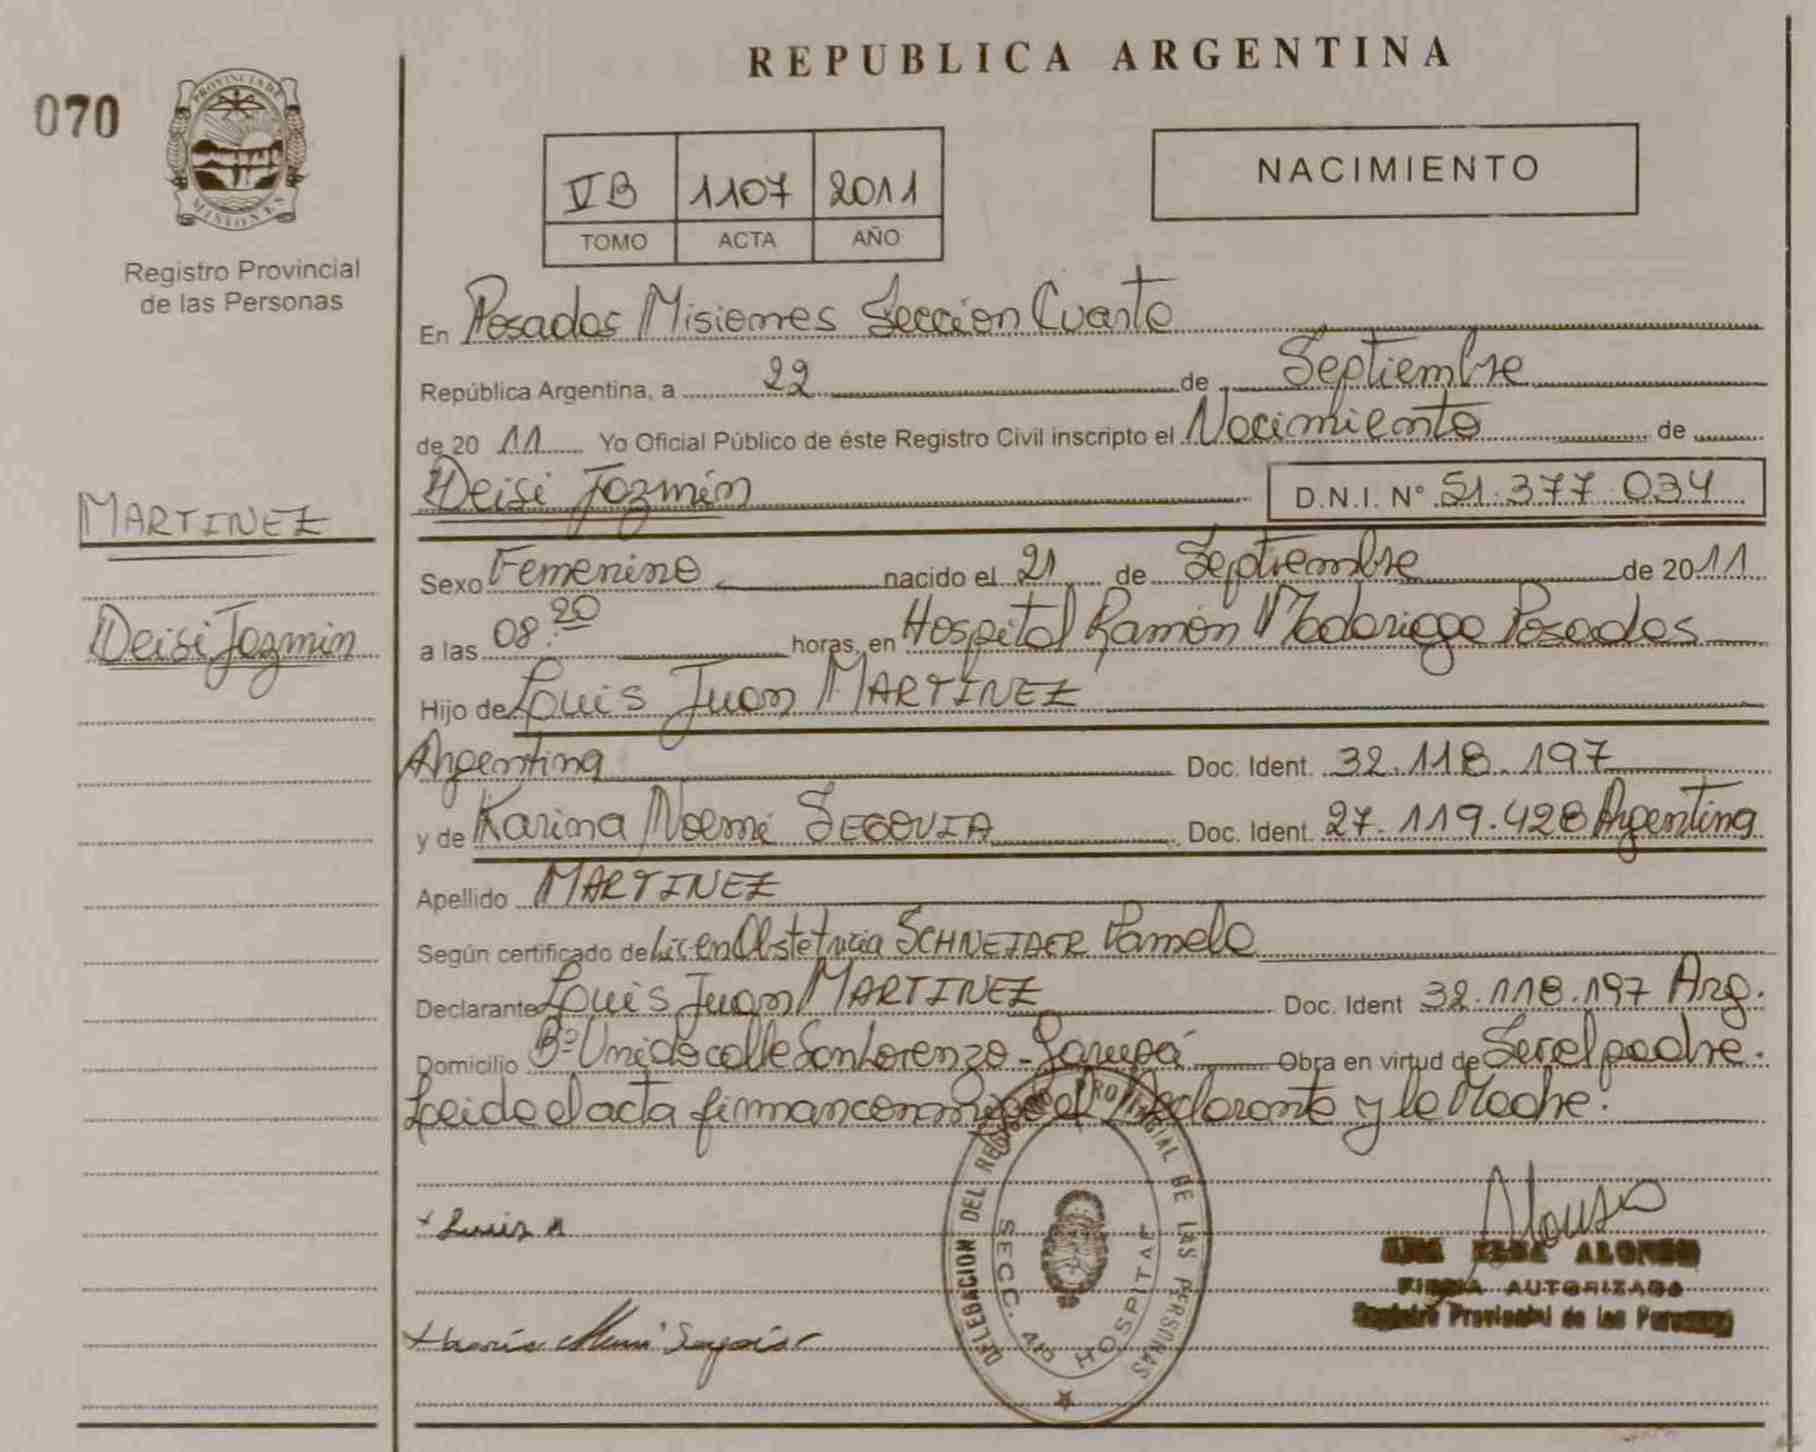 REPUBLICA ARGENTINA
070
PROVINCIA DE
MISIONES
Registro Provincial
de las Personas
VB 1107 2011
TOMO ACTA AÑO
NACIMIENTO
En Posadas Misiones Sección Cuarta
República Argentina, a 22 de Septiembre
de 20 11 Yo Oficial Público de éste Registro Civil inscripto el Nacimiento de
Deisi Jazmín D.N.I. N° 51.377.034
MARTINEZ
Deisi Jazmin
Sexo Femenino nacido el 21 de Septiembre de 2011
a las 08:20 horas, en Hospital Ramón Madariaga Posadas
Hijo de Louis Juan MARTÍNEZ
Argentina Doc. Ident. 32.118.197
y de Karina Noemí SEGOVIA Doc. Ident. 27.119.428 Argentina
Apellido MARTINEZ
Según certificado de Lic en Obstetricia SCHNEIDER Pamela
Declarante Louis Juan MARTINEZ Doc. Ident 32.118.197 Arg.
Domicilio Bº Unido calle San Lorenzo - Garupá Obra en virtud de Ser el padre.
Leida el acta firman conmigo el Declarante y la Madre.
DELEGACION DEL REGISTRO PROVINCIAL DE LAS PERSONAS
SECC. 4ta HOSPITAL
Alonso
ALONSO
FIRMA AUTORIZADA
Registro Provincial de las Personas